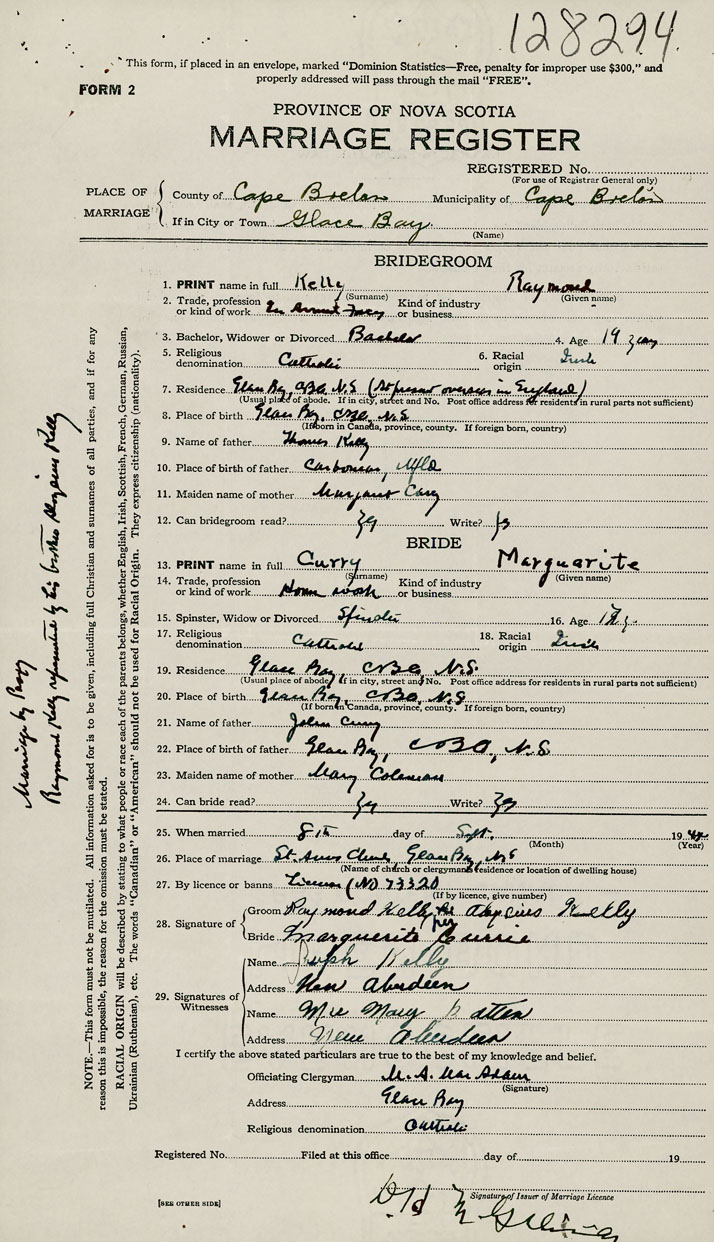 128294
This form, if placed in an envelope, marked "Dominion Statistics—Free, penalty for improper use $300," and
properly addressed will pass through the mail "FREE".
FORM 2
PROVINCE OF NOVA SCOTIA
MARRIAGE REGISTER
REGISTERED No.
(For use of Registrar General only)
PLACE OF MARRIAGE
County of Cape Breton Municipality of Cape Breton
If in City or Town Glace Bay
(Name)
BRIDEGROOM
1. PRINT name in full Kelly Raymond
(Surname) (Given name)
2. Trade, profession or kind of work In Kind of industry or business
3. Bachelor, Widower or Divorced Bachelor 4. Age 19 years
5. Religious denomination Catholic 6. Racial origin Irish
7. Residence Glace Bay, CBCo, N.S (At present overseas in England)
(Usual place of abode. If in city, street and No. Post office address for residents in rural parts not sufficient)
8. Place of birth Glace Bay, CBCo, N.S
(If born in Canada, province, county. If foreign born, country)
9. Name of father Thomas Kelly
10. Place of birth of father Carbonear, Nfld
11. Maiden name of mother Margaret
12. Can bridegroom read? Yes Write? Yes
BRIDE
13. PRINT name in full Curry Marguarite
(Surname) (Given name)
14. Trade, profession or kind of work Home work Kind of industry or business
15. Spinster, Widow or Divorced Spinster 16. Age
17. Religious denomination Catholic 18. Racial origin Irish
19. Residence Glace Bay, CBCo, N.S.
(Usual place of abode. If in city, street and No. Post office address for residents in rural parts not sufficient)
20. Place of birth Glace Bay, CBCo, N.S
(If born in Canada, province, county. If foreign born, country)
21. Name of father John Curry
22. Place of birth of father Glace Bay, CBCo, N.S
23. Maiden name of mother Mary Coleman
24. Can bride read? Yes Write? Yes
25. When married 8th day of Sept. 19
(Month) (Year)
26. Place of marriage St. Anns Church, Glace Bay, N.S
(Name of church or clergyman's residence or location of dwelling house)
27. By licence or banns License (No) 73320
(If by licence, give number)
28. Signature of
Groom Raymond Kelly per Aloysius Kelly
Bride Marguerite Currie
29. Signatures of Witnesses
Name Joseph Kelly
Address New Aberdeen
Name Mrs Mary
Address New Aberdeen
I certify the above stated particulars are true to the best of my knowledge and belief.
Officiating Clergyman M. A. MacAdam
(Signature)
Address Glace Bay
Religious denomination Catholic
Registered No. Filed at this office day of 19
Signature of Issuer of Marriage Licence
[SEE OTHER SIDE]
Marriage by Proxy
Raymond Kelly represented by his brother Aloysius Kelly
NOTE.—This form must not be mutilated. All information asked for is to be given, including full Christian and surnames of all parties, and if for any
reason this is impossible, the reason for the omission must be stated.
RACIAL ORIGIN will be described by stating to what people or race each of the parents belongs, whether English, Irish, Scottish, French, German, Russian,
Ukrainian (Ruthenian), etc. The words "Canadian" or "American" should not be used for Racial Origin. They express citizenship (nationality).